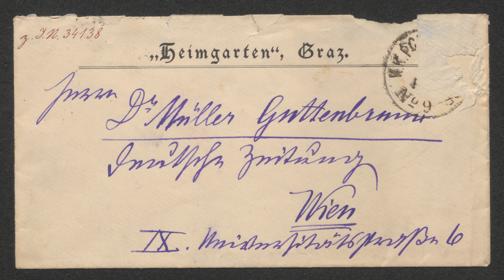 z. I.N. 34138
„Heimgarten“, Graz.
No 9
Herrn
Dr Müller Guttenbrunn
Deutsche Zeitung
Wien
IX. Universitätsstraße 6